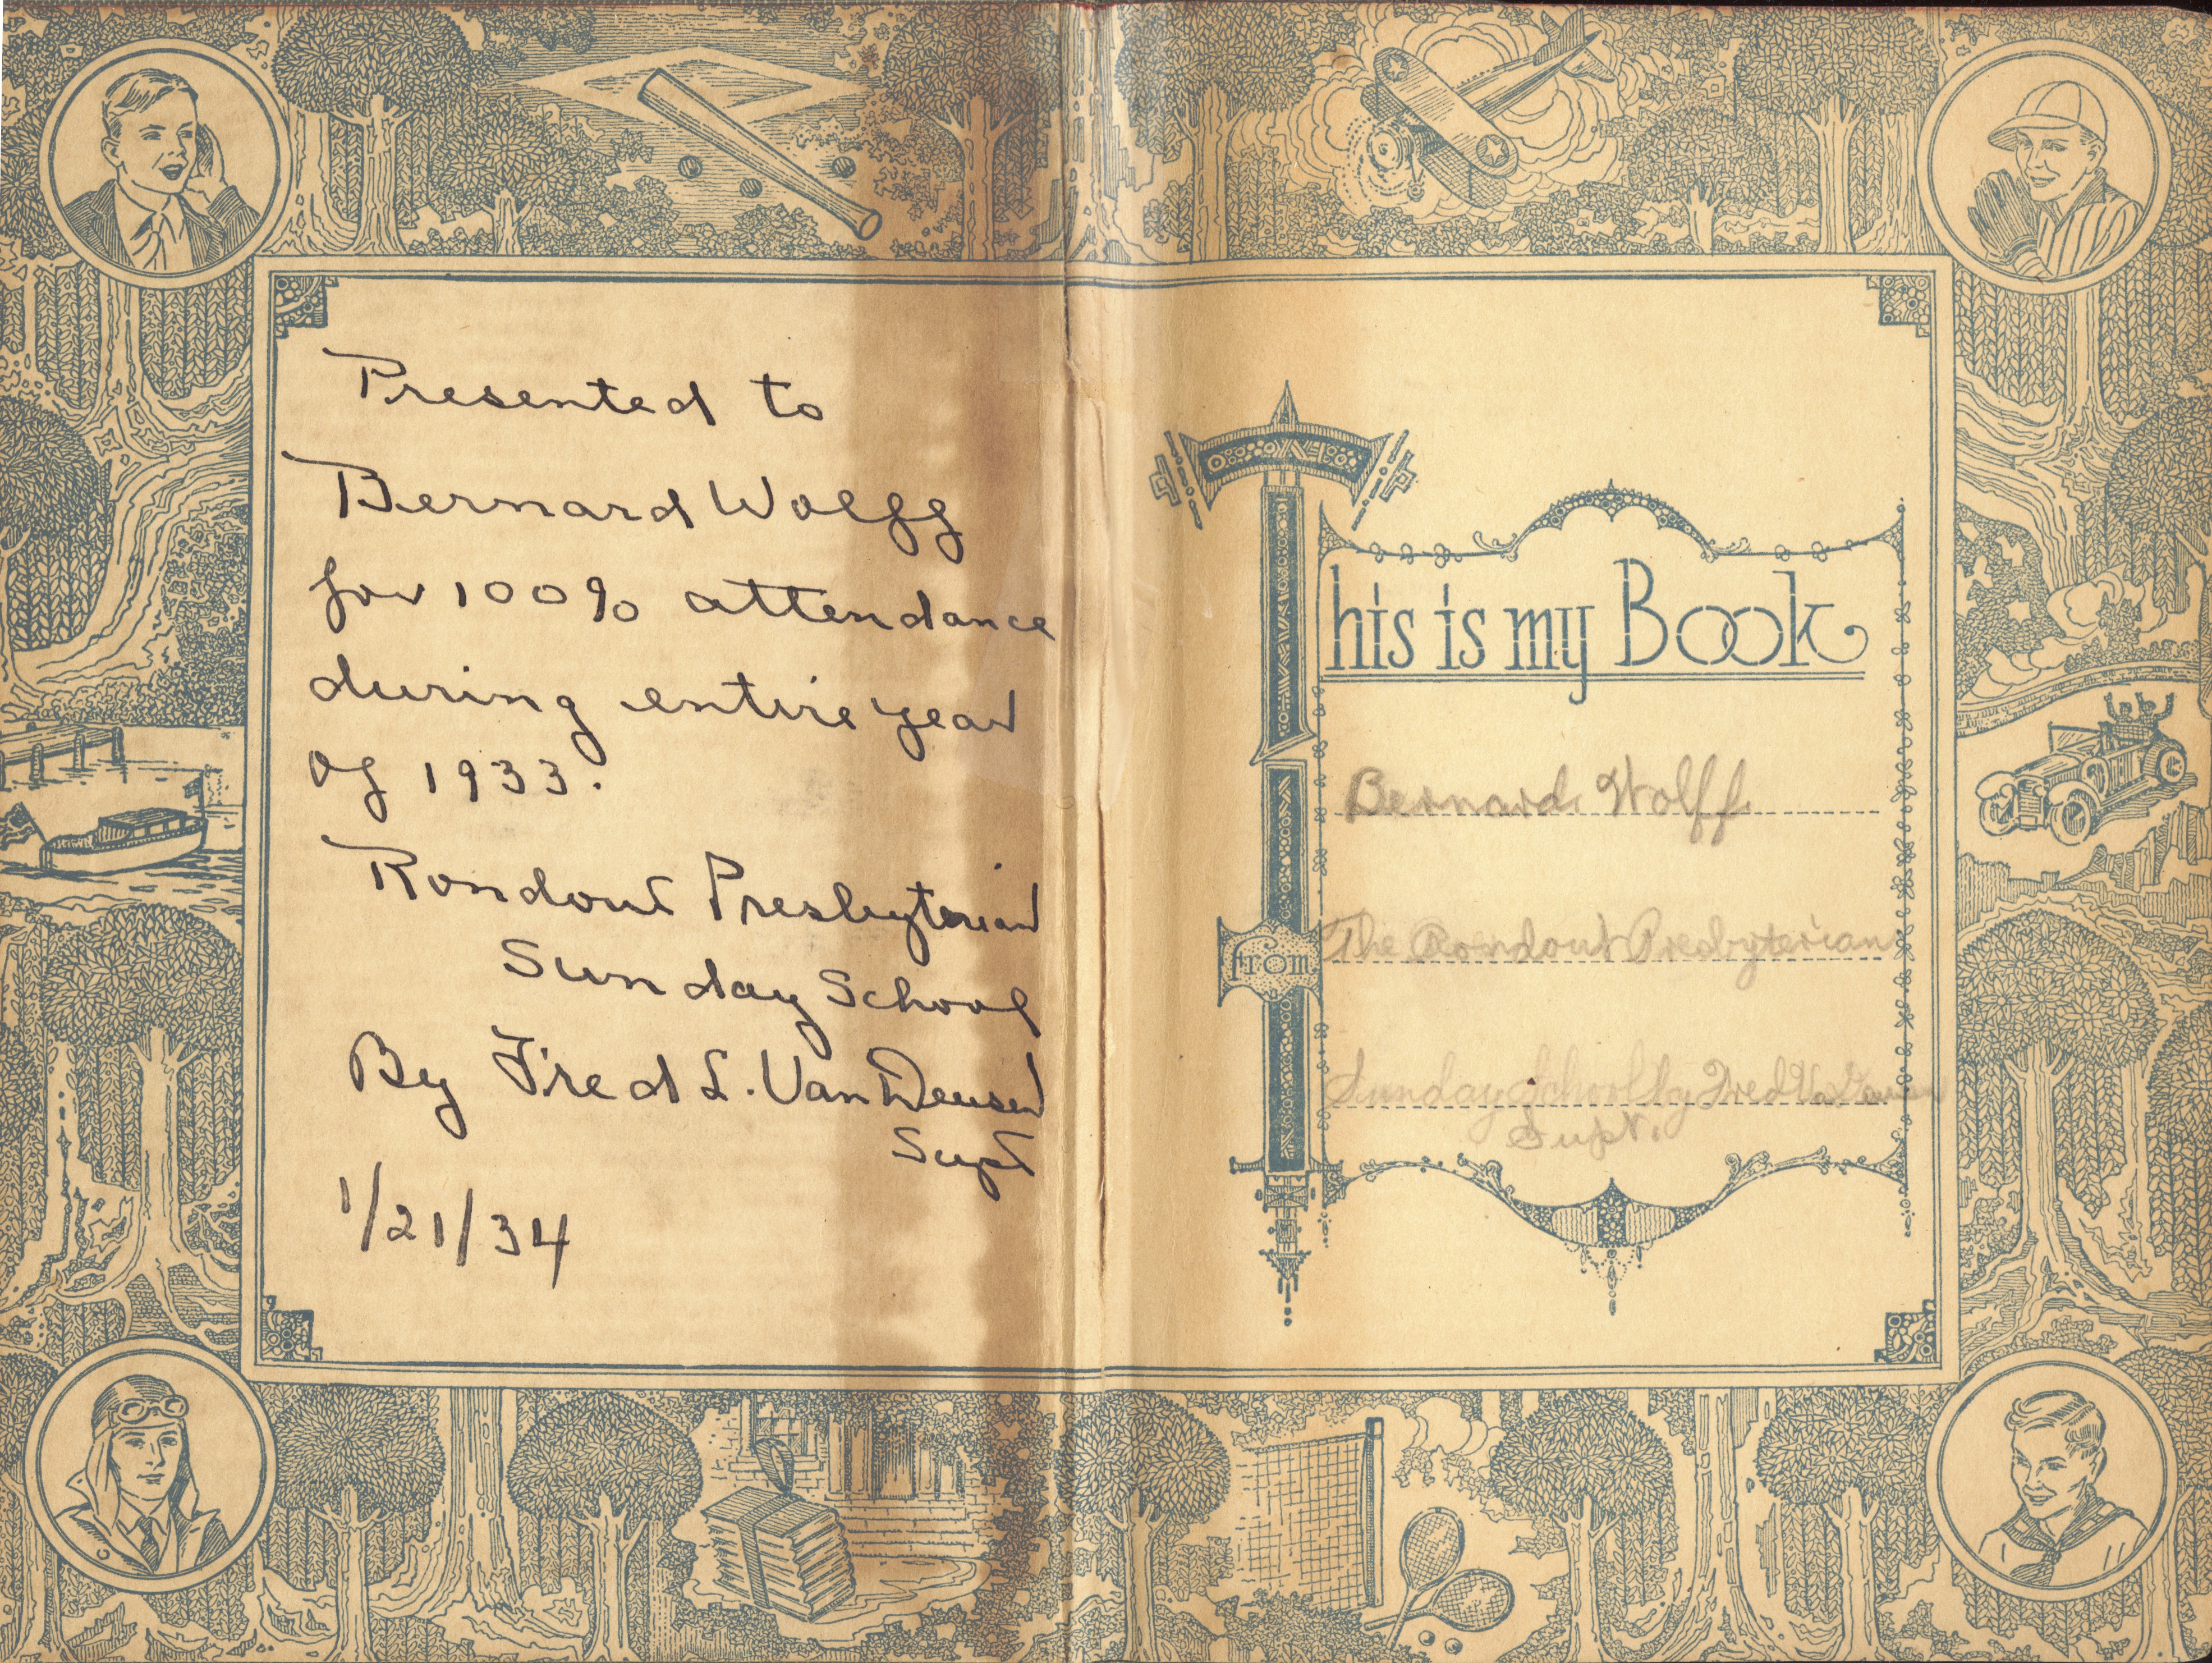 Presented to
Bernard Wolff
for 100% attendance
during entire year
of 1933.
Rondout Presbyterian
Sunday School
By Fred L. Van Deusen
Supt
1/21/34
This is my Book
Bernard Wolff
from The Rondout Presbyterian
Sunday School by Fred
Supt.